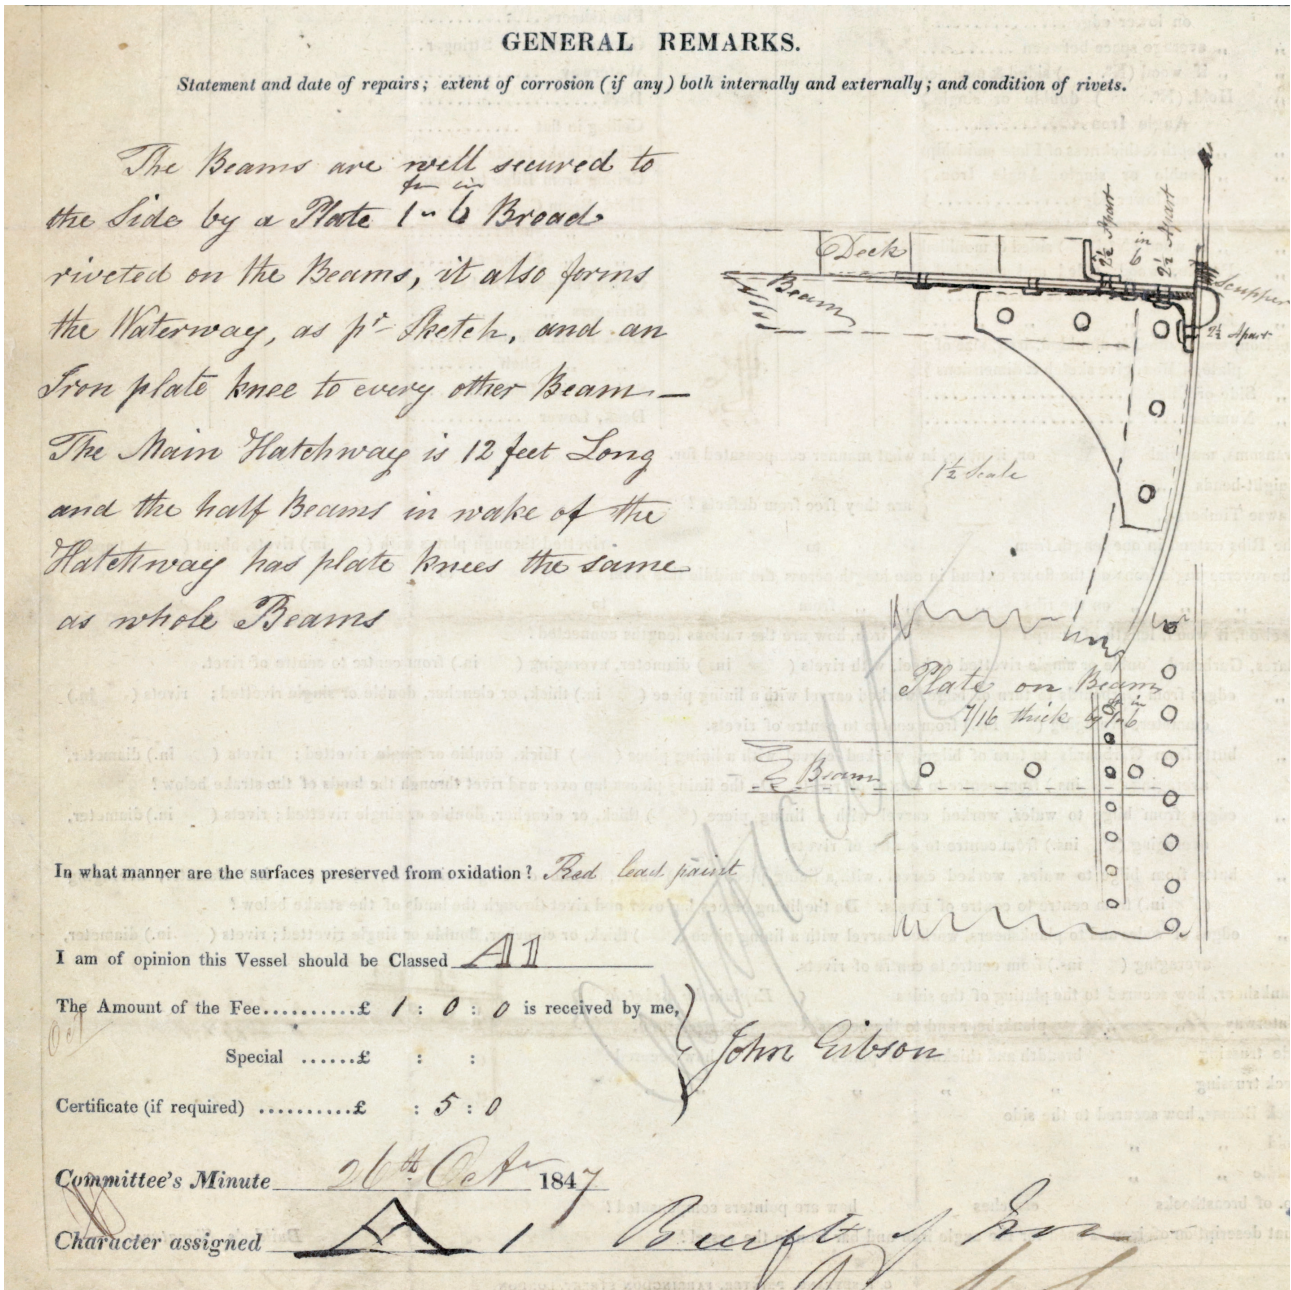 GENERAL REMARKS.
Statement and date of repairs; extent of corrosion (if any) both internally and externally; and condition of rivets.
The Beams are well secured to
the Side by a Plate 1 ft 6 in Broad
riveted on the Beams, it also forms
the Waterway, as pr Sketch, and an
Iron plate knee to every other Beam —
The Main Hatchway is 12 feet Long
and the half Beams in wake of the
Hatchway has plate knees the same
as whole Beams
Deck
Beam
2½ Apart
6 in
2½ Apart
Scupper
2¼ Apart
1½ Scale
Plate on Beams
7/16 thick by 1 ft 6 in
Beam
In what manner are the surfaces preserved from oxidation? Red lead paint
I am of opinion this Vessel should be Classed A1
The Amount of the Fee..........£ 1 : 0 : 0 is received by me,
Oct
Special ......£ : :
John Gibson
Certificate (if required) ..........£ : 5 : 0
Committee's Minute 26th Octr 1847
Character assigned A 1 Built of Iron